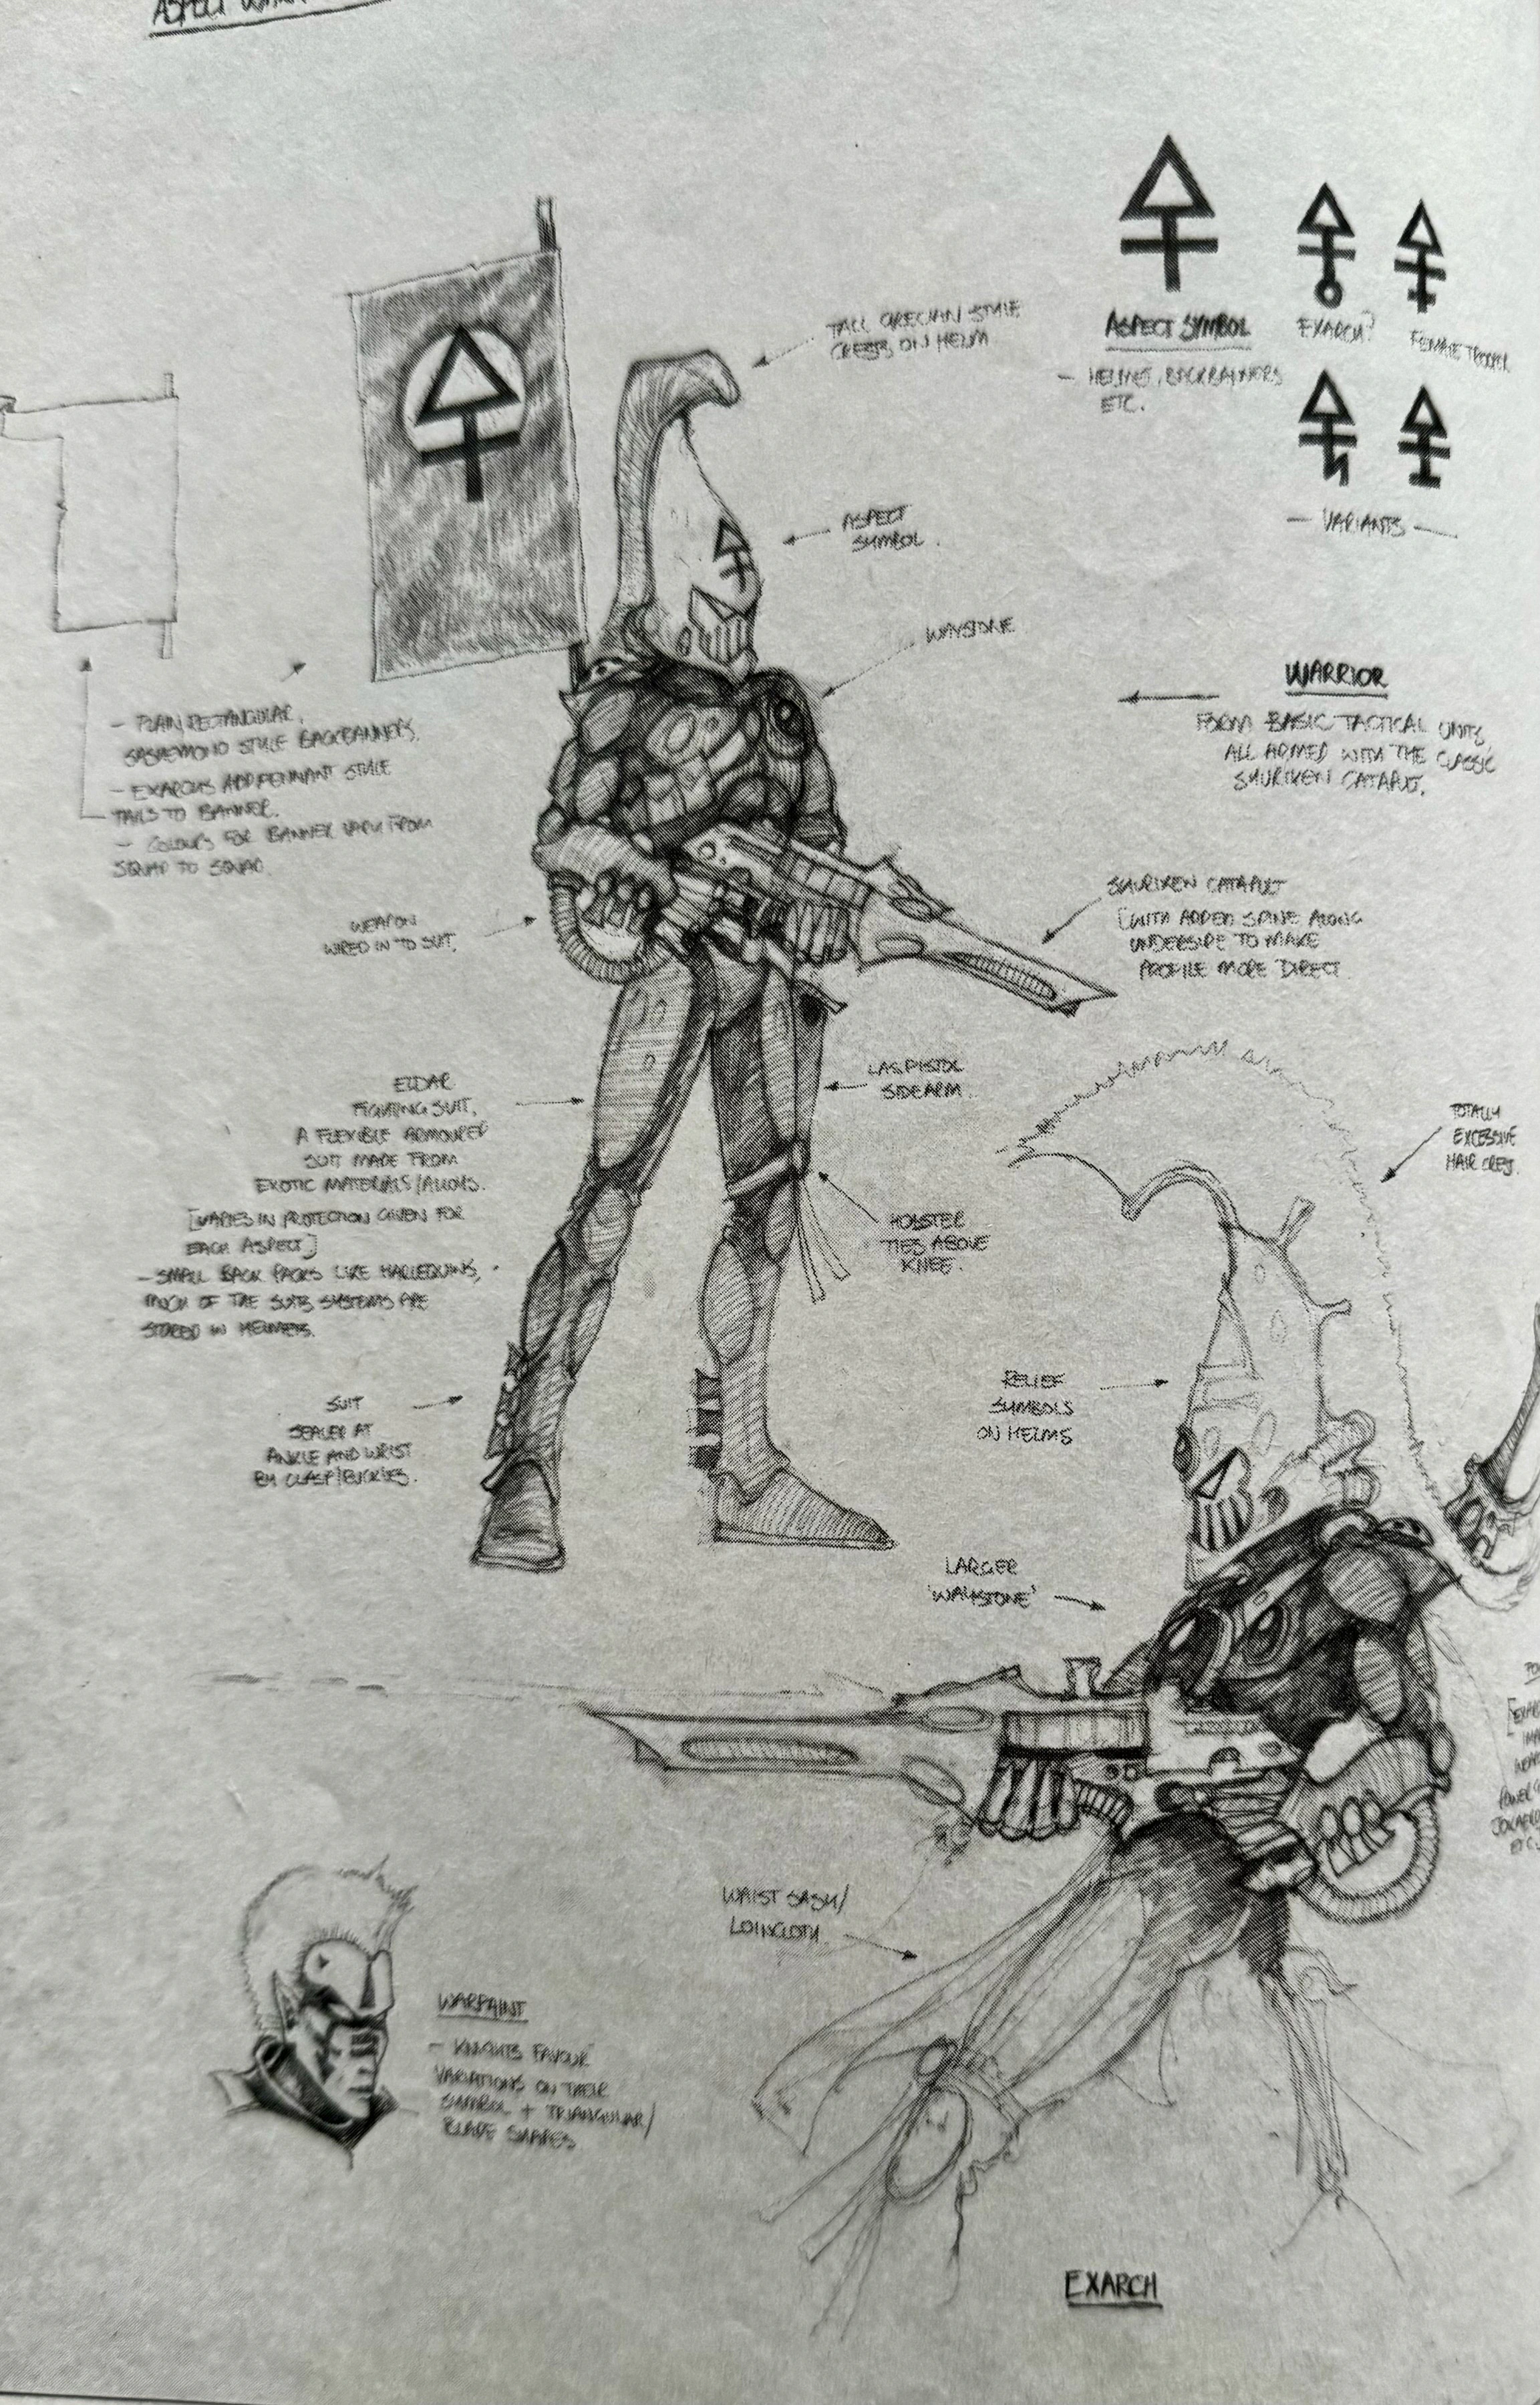 ASPECT
TALL GRECIAN STYLE
CRESTS ON HELM
ASPECT SYMBOL
- HELMET, BACKBANNERS
ETC.
EXARCH?
FEMALE TROOPER
- VARIANTS -
ASPECT
SYMBOL.
WAYSTONE
WARRIOR
FORM BASIC TACTICAL UNITS,
ALL ARMED WITH THE CLASSIC
SHURIKEN CATAPULT.
- PLAIN RECTANGULAR,
SASHIMONO STYLE BACKBANNERS.
- EXARCHS ADD PENNANT STYLE
TAILS TO BANNER.
- COLOURS FOR BANNER VARY FROM
SQUAD TO SQUAD.
WEAPON
WIRED IN TO SUIT.
SHURIKEN CATAPULT
[WITH ADDED SPINE ALONG
UNDERSIDE TO MAKE
PROFILE MORE 'DIRECT'.
LASPISTOL
SIDEARM.
ELDAR
FIGHTING SUIT,
A FLEXIBLE ARMOURED
SUIT MADE FROM
EXOTIC MATERIALS/ALLOYS.
[VARIES IN PROTECTION GIVEN FOR
EACH ASPECT]
- SMALL BACK PACKS LIKE HARLEQUINS,
MUCH OF THE SUITS SYSTEMS ARE
STORED IN HELMETS.
HOLSTER
TIES ABOVE
KNEE.
TOTALLY
EXCESSIVE
HAIR CREST.
SUIT
SEALED AT
ANKLE AND WRIST
BY CLASP/BUCKLES.
RELIEF
SYMBOLS
ON HELMS
LARGER
'WAYSTONE'
POWER
ETC.
WAIST SASH/
LOINCLOTH.
WARPAINT
- KNIGHTS FAVOUR
VARIATIONS ON THEIR
SYMBOL + TRIANGULAR/
BLADE SHAPES
EXARCH